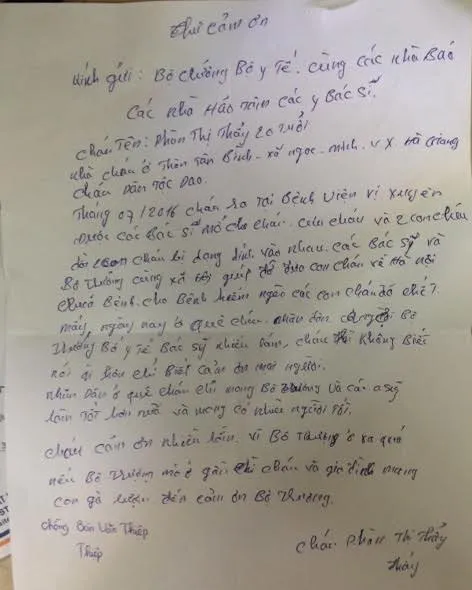 Thư cảm ơn
Kính gửi: Bộ trưởng Bộ y Tế. cùng các nhà Báo
Các nhà Hảo tâm các y Bác Sĩ.
Cháu Tên: Phàn Thị Thủy 20 tuổi
nhà cháu ở Thôn Tân Bình - xã ngọc - minh. V X Hà Giang
cháu Dân Tộc Dao.
Tháng 07/2016 cháu ra tại Bệnh Viện vị xuyên
Được các Bác Sĩ mổ cho cháu. cứu cháu và 2 con cháu
2 con cháu bị dạng dính vào nhau. các Bác Sỹ và
Bộ trưởng cùng xã hội giúp đỡ đưa con cháu về Hà Nội
chữa Bệnh. cho Bệnh hiểm nghèo các con cháu đỡ chết.
mấy ngày nay ở quê cháu. nhân dân Bộ
Trưởng Bộ y Tế Bác sỹ nhiều lắm, cháu không Biết
nói gì hơn chỉ Biết cảm ơn mọi người.
nhân Dân ở quê cháu chỉ mong Bộ trưởng và các
làm tốt hơn nữa và mong có nhiều người tốt.
cháu cảm ơn nhiều lắm. vì Bộ Trưởng ở xa quá
nếu Bộ Trưởng mà ở gần thì cháu và gia đình mang
con gà đến cảm ơn Bộ Trưởng.
chồng Bàn Văn Thiệp
Thiệp
cháu Phàn Thị Thủy
Thủy